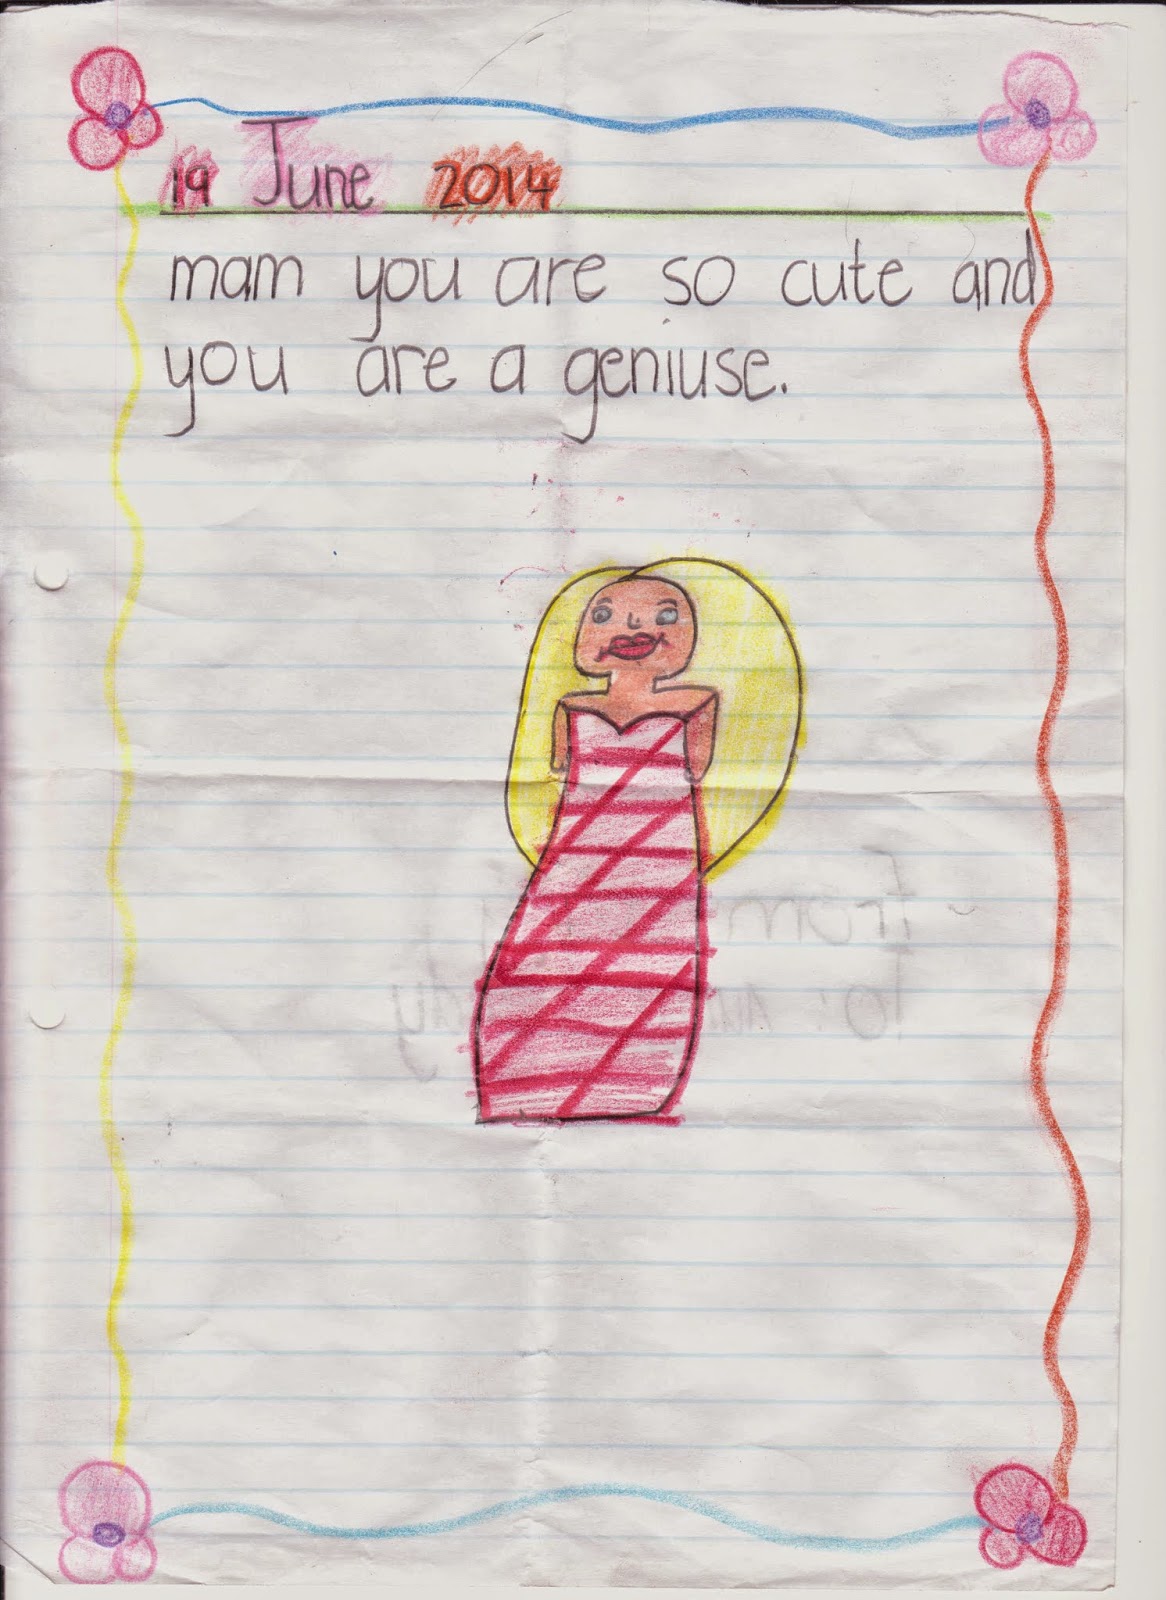 19 June 2014
mam you are so cute and
you are a geniuse.
from
to: